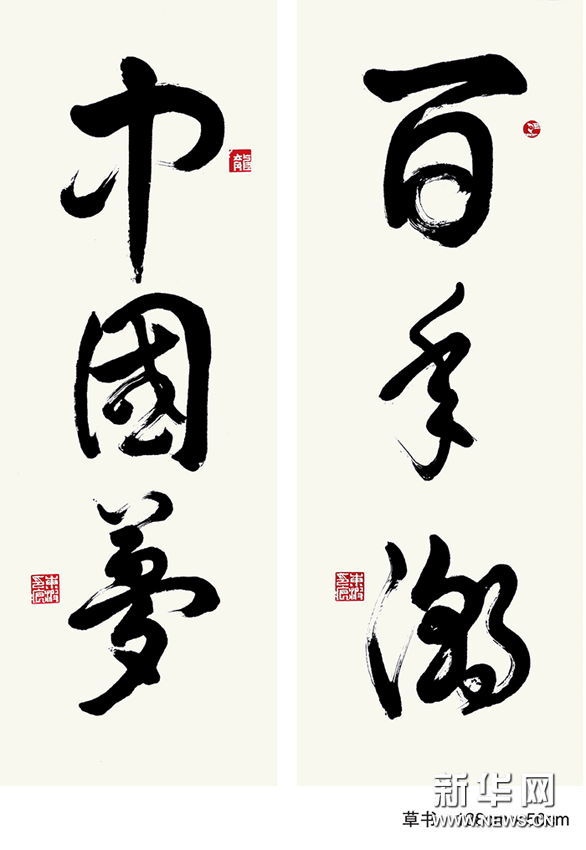 百年潮
中國夢
新华网
WWW.NEWS.CN
草书